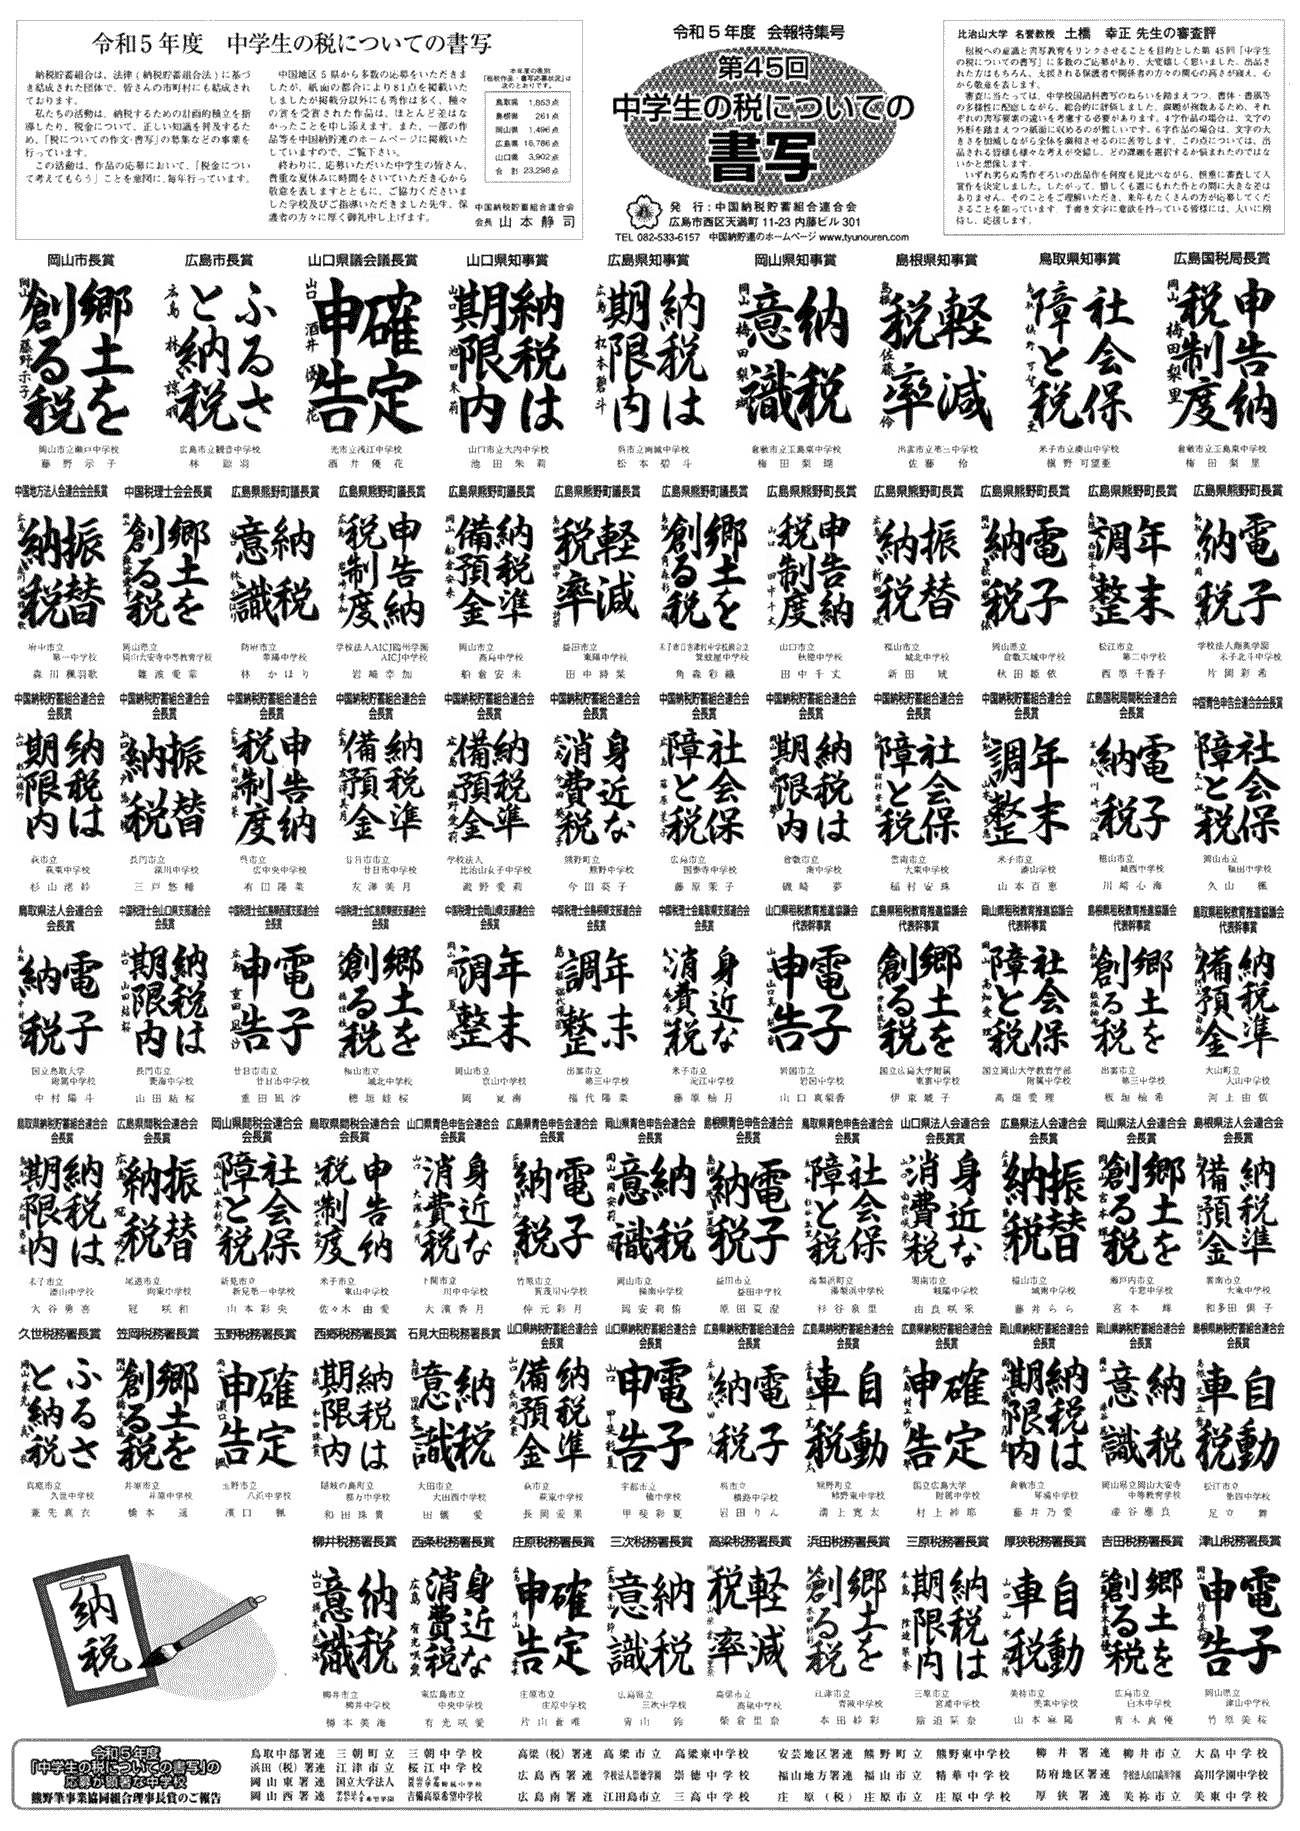 令和５年度　中学生の税についての書写
納税貯蓄組合は、法律（納税貯蓄組合法）に基づ
き結成された団体で、皆さんの市町村にも結成され
ております。
私たちの活動は、納税するための計画的積立を指
導したり、税金について、正しい知識を普及するた
め、「税についての作文・書写」の募集などの事業を
行っています。
この活動は、作品の応募において、「税金につい
て考えてもらう」ことを意図に、毎年行っています。
中国地区５県から多数の応募をいただきま
したが、紙面の都合により８１点を掲載いた
しましたが掲載分以外にも秀作は多く、種々
の賞を受賞された作品は、ほとんど差はな
かったことを申し添えます。また、一部の作
品等を中国納貯連のホームページに掲載いた
していますので、ご覧下さい。
終わりに、応募いただいた中学生の皆さん、
貴重な夏休みに時間をさいていただき心から
敬意を表しますとともに、ご協力くださいま
した学校及びご指導いただきました先生、保
護者の方々に厚く御礼申し上げます。
本年度の県別
「税作品・書写応募状況」は
次のとおりです。
鳥取県　1,853点
島根県　261点
岡山県　1,496点
広島県　15,786点
山口県　3,902点
合計　23,298点
中国納税貯蓄組合連合会
会長　山本静司
令和５年度　会報特集号
第45回
中学生の税についての
書写
発行：中国納税貯蓄組合連合会
広島市西区天満町 11-23 内藤ビル 301
TEL 082-533-6157　中国納貯連のホームページ www.tyunouren.com
比治山大学　名誉教授　土橋　幸正 先生の審査評
租税への意識と書写教育をリンクさせることを目的とした第45回「中学生
の税についての書写」に多数のご応募があり、大変嬉しく思いました。出品さ
れた方はもちろん、支援される保護者や関係者の方々の関心の高さが窺え、心
から敬意を表します。
審査に当たっては、中学校国語科書写のねらいを踏まえつつ、書体・書風等
の多様性に配慮しながら、総合的に評価しました。課題が複数あるため、それ
ぞれの書写要素の違いを考慮する必要があります。４字作品の場合は、文字の
外形を踏まえつつ紙面に収めるのが難しいです。６字作品の場合は、文字の大
きさを加減しながら全体を調和させるのに苦労します。この点については、出
品される皆様も様々な考えが交錯し、どの課題を選択するか悩まれたのではな
いかと想像します。
いずれ劣らぬ秀作ぞろいの出品作を何度も見比べながら、慎重に審査して入
賞作を決定しました。したがって、惜しくも選にもれた作との間に大きな差は
ありません。そのことをご理解いただき、来年もたくさんの方が応募してくだ
さることを願っています。手書き文字に意欲を持っている皆様には、大いに期
待し、応援します。
岡山市長賞　広島市長賞　山口県議会議長賞　山口県知事賞　広島県知事賞　岡山県知事賞　島根県知事賞　鳥取県知事賞　広島国税局長賞
郷土を創る税　ふるさと納税　確定申告　納税は期限内　納税は期限内　納税意識　軽減税率　社会保障と税　申告納税制度
岡山市立瀬戸中学校　広島市立観音中学校　光市立浅江中学校　山口市立大内中学校　呉市立両城中学校　倉敷市立玉島東中学校　出雲市立第三中学校　米子市立湊山中学校　倉敷市立玉島東中学校
藤野示子　林諒羽　酒井優花　池田朱莉　松本碧斗　梅田梨瑚　佐藤伶　槇野可望亜　梅田梨里
中国地方法人会連合会会長賞　中国税理士会会長賞　広島県熊野町議長賞　広島県熊野町議長賞　広島県熊野町議長賞　広島県熊野町議長賞　広島県熊野町議長賞　広島県熊野町長賞　広島県熊野町長賞　広島県熊野町長賞　広島県熊野町長賞　広島県熊野町長賞
振替納税　郷土を創る税　納税意識　申告納税制度　納税準備預金　軽減税率　郷土を創る税　申告納税制度　振替納税　電子納税　年末調整　電子納税
府中市立第一中学校　岡山県立岡山大安寺中等教育学校　防府市立華陽中学校　学校法人AICJ鷗州学園AICJ中学校　岡山市立高島中学校　益田市立東陽中学校　山口市立秋穂中学校　福山市立城北中学校　岡山県立倉敷天城中学校　松江市立第二中学校　学校法人翔英学園米子北斗中学校
森川楓羽歌　難波愛菜　林かほり　岩崎幸加　船倉安未　田中詩栞　角森彩織　田中千丈　新田　秋田姫依　西原千香子　片岡彩希
中国納税貯蓄組合連合会会長賞　中国納税貯蓄組合連合会会長賞　中国納税貯蓄組合連合会会長賞　中国納税貯蓄組合連合会会長賞　中国納税貯蓄組合連合会会長賞　中国納税貯蓄組合連合会会長賞　中国納税貯蓄組合連合会会長賞　中国納税貯蓄組合連合会会長賞　中国納税貯蓄組合連合会会長賞　中国納税貯蓄組合連合会会長賞　広島国税局間税会連合会会長賞　中国青色申告会連合会会長賞
納税は期限内　振替納税　申告納税制度　納税準備預金　納税準備預金　身近な消費税　社会保障と税　納税は期限内　社会保障と税　年末調整　電子納税　社会保障と税
萩市立萩東中学校　長門市立深川中学校　呉市立広中央中学校　廿日市市立廿日市中学校　学校法人比治山女子中学校　熊野町立熊野中学校　広島市立国泰寺中学校　倉敷市立南中学校　雲南市立大東中学校　米子市立湊山中学校　福山市立城西中学校　岡山市立福田中学校
杉山渚紗　三戸悠輔　有田陽菜　友澤美月　瀧野愛莉　今田葵子　藤原茉子　磯崎夢　稲村安珠　山本百恵　川崎心海　久山楓
鳥取県法人会連合会会長賞　中国税理士会山口県支部連合会会長賞　中国税理士会広島県西部支部連合会会長賞　中国税理士会広島県東部支部連合会会長賞　中国税理士会岡山県支部連合会会長賞　中国税理士会島根県支部連合会会長賞　中国税理士会鳥取県支部連合会会長賞　山口県租税教育推進協議会代表幹事賞　広島県租税教育推進協議会代表幹事賞　岡山県租税教育推進協議会代表幹事賞　島根県租税教育推進協議会代表幹事賞　鳥取県租税教育推進協議会代表幹事賞
電子納税　納税は期限内　電子申告　郷土を創る税　年末調整　年末調整　身近な消費税　電子申告　郷土を創る税　社会保障と税　郷土を創る税　納税準備預金
国立鳥取大学附属中学校　長門市立菱海中学校　廿日市市立廿日市中学校　福山市立城北中学校　岡山市立京山中学校　出雲市立第三中学校　米子市立淀江中学校　岩国市立岩国中学校　国立広島大学附属東雲中学校　国立岡山大学教育学部附属中学校　出雲市立第三中学校　大山町立大山中学校
中村陽斗　山田結桜　重田凪沙　穂垣娃桜　岡夏海　福代陽菜　藤原柚月　山口真梨香　伊東暖子　高畑愛理　板垣柚希　河上由依
鳥取県納税貯蓄組合連合会会長賞　広島県間税会連合会会長賞　岡山県間税会連合会会長賞　鳥取県間税会連合会会長賞　山口県青色申告会連合会会長賞　広島県青色申告会連合会会長賞　岡山県青色申告会連合会会長賞　島根県青色申告会連合会会長賞　鳥取県青色申告会連合会会長賞　山口県法人会連合会会長賞　広島県法人会連合会会長賞　岡山県法人会連合会会長賞　島根県法人会連合会会長賞
納税は期限内　振替納税　社会保障と税　申告納税制度　身近な消費税　電子納税　納税意識　電子納税　社会保障と税　身近な消費税　振替納税　郷土を創る税　納税準備預金
米子市立湊山中学校　尾道市立向東中学校　新見市立新見第一中学校　米子市立東山中学校　下関市立川中中学校　竹原市立賀茂川中学校　岡山市立操南中学校　益田市立益田中学校　湯梨浜町立湯梨浜中学校　周南市立岐陽中学校　福山市立城南中学校　瀬戸内市立牛窓中学校　雲南市立大東中学校
大谷勇喜　冠咲和　山本彩央　佐々木由愛　大濱香月　仲元彩月　岡安莉侑　原田夏澄　杉谷泉里　由良咲栄　藤井らら　宮本輝　和多田倶子
久世税務署長賞　笠岡税務署長賞　玉野税務署長賞　西郷税務署長賞　石見大田税務署長賞　山口県納税貯蓄組合連合会会長賞　山口県納税貯蓄組合連合会会長賞　広島県納税貯蓄組合連合会会長賞　広島県納税貯蓄組合連合会会長賞　広島県納税貯蓄組合連合会会長賞　岡山県納税貯蓄組合連合会会長賞　岡山県納税貯蓄組合連合会会長賞　島根県納税貯蓄組合連合会会長賞
ふるさと納税　郷土を創る税　確定申告　納税は期限内　納税意識　納税準備預金　電子申告　電子納税　自動車税　確定申告　納税は期限内　納税意識　自動車税
真庭市立久世中学校　井原市立井原中学校　玉野市立八浜中学校　隠岐の島町立都万中学校　大田市立大田西中学校　萩市立萩東中学校　宇部市立楠中学校　呉市立横路中学校　熊野町立熊野東中学校　国立広島大学附属中学校　倉敷市立琴浦中学校　岡山県立岡山大安寺中等教育学校　松江市立第四中学校
兼先真衣　橋本遥　濱口楓　和田珠貴　田儀愛　長岡愛果　甲斐彩夏　岩田りん　溝上寛太　村上紗耶　藤井乃愛　漆谷應良　足立舞
納税
柳井税務署長賞　西条税務署長賞　庄原税務署長賞　三次税務署長賞　高梁税務署長賞　浜田税務署長賞　三原税務署長賞　厚狭税務署長賞　吉田税務署長賞　津山税務署長賞
納税意識　身近な消費税　確定申告　納税意識　軽減税率　郷土を創る税　納税は期限内　自動車税　郷土を創る税　電子申告
柳井市立柳井中学校　東広島市立中央中学校　庄原市立庄原中学校　広島県立三次中学校　高梁市立高梁中学校　江津市立青陵中学校　三原市立宮浦中学校　美祢市立美東中学校　広島市立白木中学校　岡山県立津山中学校
樽本美海　有光咲愛　片山蒼唯　青山鈴　柴倉里奈　本田紗彩　山本麻陽　青木真優　竹原美桜
令和５年度
「中学生の税についての書写」の
応募が顕著な中学校
熊野筆事業協同組合理事長賞のご報告
鳥取中部署連　三朝町立　三朝中学校　高梁（税）署連　高梁市立　高梁東中学校　安芸地区署連　熊野町立　熊野東中学校　柳井署連　柳井市立　大畠中学校
浜田（税）署連　江津市立　桜江中学校　広島西署連　学校法人崇徳学園　崇徳中学校　福山地方署連　福山市立　精華中学校　防府地区署連　学校法人山口高川学園　高川学園中学校
岡山東署連　国立大学法人　岡山大学教育学部附属中学校　広島南署連　江田島市立　三高中学校　庄原（税）　庄原市立　庄原中学校　厚狭署連　美祢市立　美東中学校
岡山西署連　吉備高原希望中学校